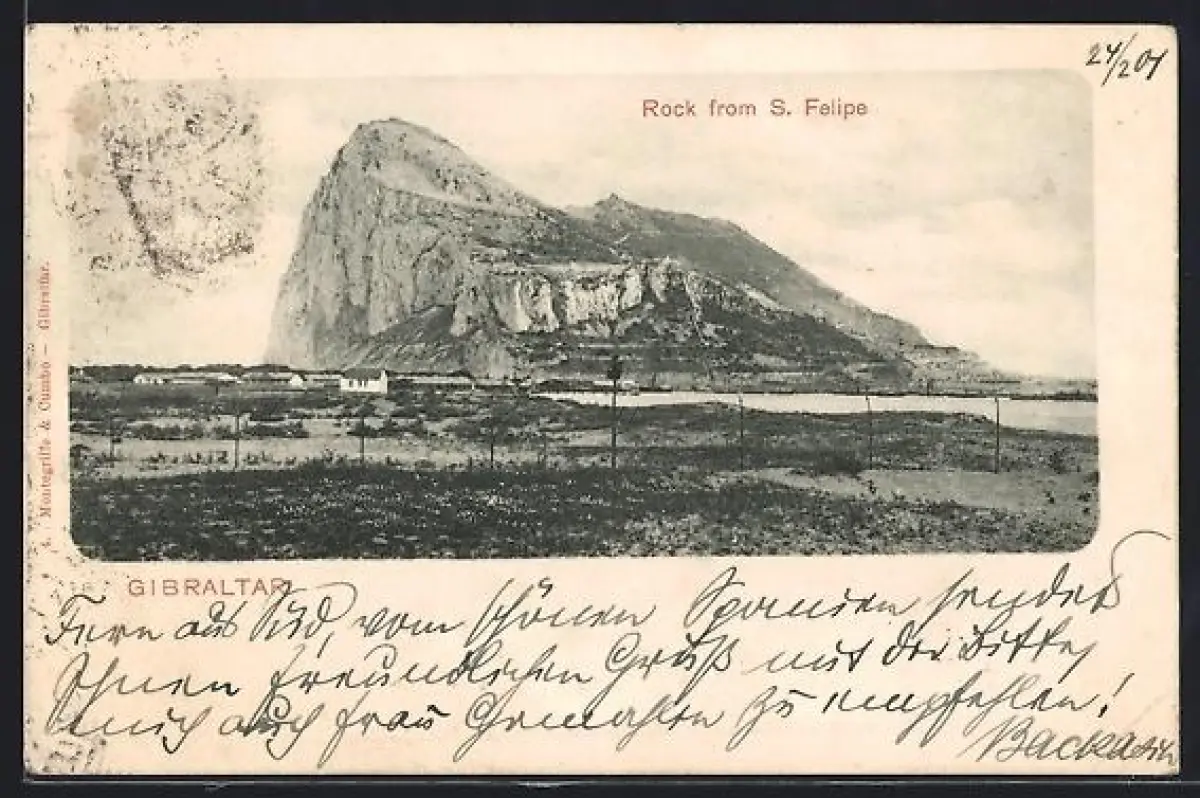 24/2 01
Rock from S. Felipe
4. Montegriffo & Cumbo — Gibraltar.
GIBRALTAR
Fern aus Süd, vom schönen Spanien sendet
Ihnen freundlichen Gruß mit der Bitte,
mich auch frau Gemahlin zu empfehlen!